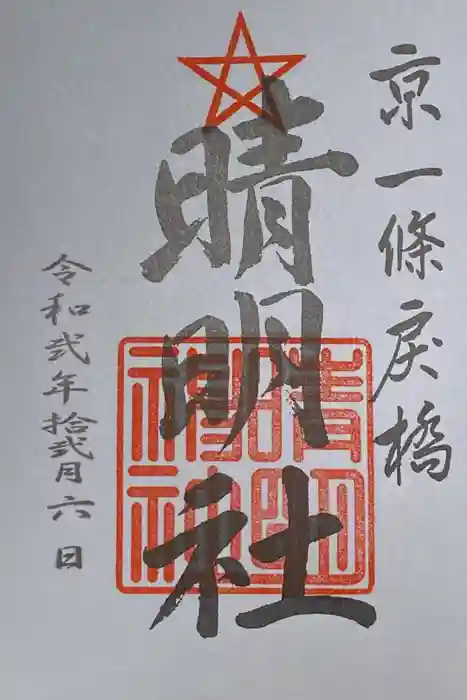 京一條戻橋
晴明社
晴明
御神
令和弐年拾弐月六日